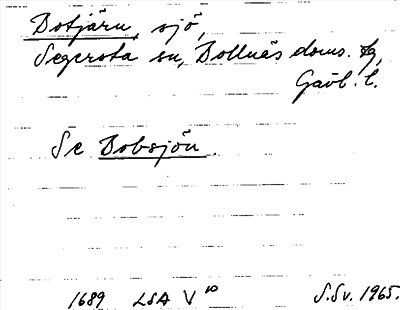 Botjärn, sjö,
Segersta sn, Bollnäs doms. tg,
Gävl. l.
Se Bobsjön.
1689 LSA V¹⁰ S.Sv. 1965.